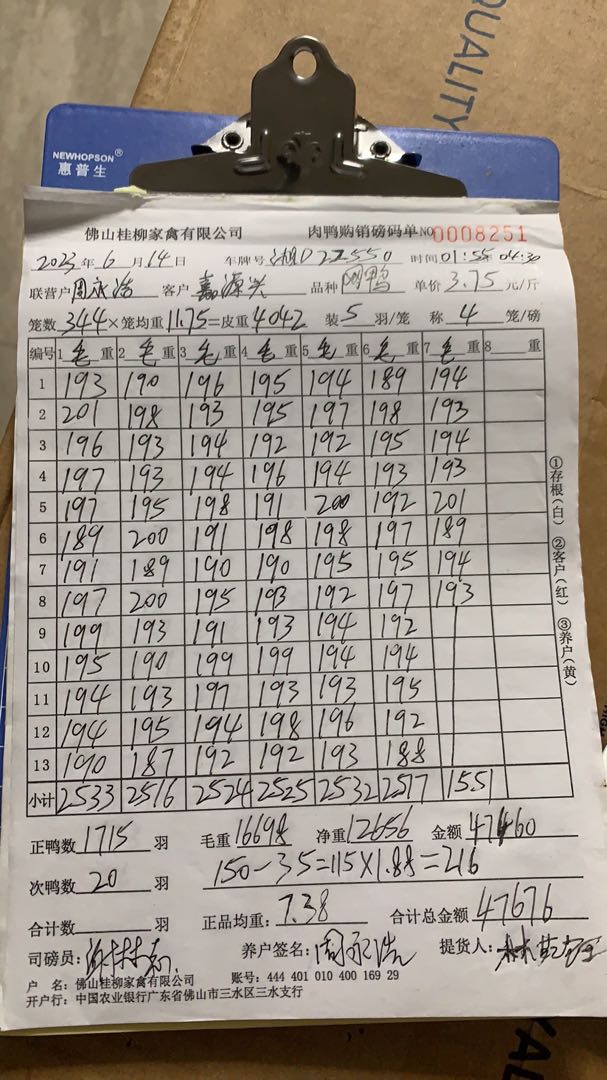 QUALITY
NEWHOPSON®
惠普生
佛山桂柳家禽有限公司 肉鸭购销磅码单 NO 0008251
2023年6月14日 车牌号 湘D22550 时间 01:55 04:30
联营户 周永浩 客户 嘉源兴 品种 网鸭 单价 3.75 元/斤
笼数 344×笼均重 11.75=皮重 4042 装 5 羽/笼 称 4 笼/磅
编号 1 毛 重 2 毛 重 3 毛 重 4 毛 重 5 毛 重 6 毛 重 7 毛 重 8 重
1 193 190 196 195 194 189 194
2 201 198 193 195 197 198 193
3 196 193 194 192 192 195 194
4 197 193 194 196 194 193 193
5 197 195 198 191 200 192 201
6 189 200 191 198 198 197 189
7 191 189 190 190 195 195 194
8 197 200 195 193 192 197 193
9 199 193 191 193 194 192
10 195 190 199 199 194 194
11 194 193 197 193 193 195
12 194 195 194 198 196 192
13 190 187 192 192 193 188
小计 2533 2516 2524 2525 2532 2517 1551
①存根(白) ②客户(红) ③养户(黄)
正鸭数 1715 羽 毛重 16698 净重 12656 金额 47460
次鸭数 20 羽 150-35=115×1.88=216
合计数 羽 正品均重: 7.38 合计总金额 47676
司磅员: 养户签名: 周永浩 提货人:
户 名: 佛山桂柳家禽有限公司 账号: 444 401 010 400 169 29
开户行: 中国农业银行广东省佛山市三水区三水支行